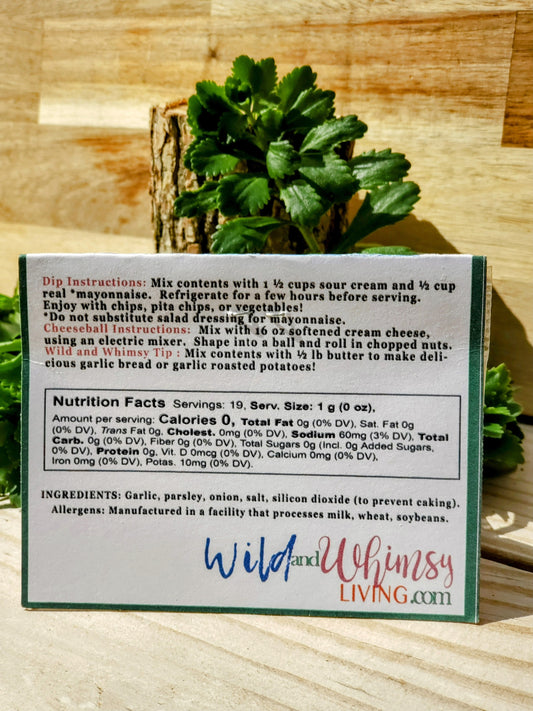 Dip Instructions: Mix contents with 1 ½ cups sour cream and ½ cup
real *mayonnaise. Refrigerate for a few hours before serving.
Enjoy with chips, pita chips, or vegetables!
*Do not substitute salad dressing for mayonnaise.
Cheeseball Instructions: Mix with 16 oz softened cream cheese,
using an electric mixer. Shape into a ball and roll in chopped nuts.
Wild and Whimsy Tip : Mix contents with ½ lb butter to make deli-
cious garlic bread or garlic roasted potatoes!
Nutrition Facts Servings: 19, Serv. Size: 1 g (0 oz),
Amount per serving: Calories 0, Total Fat 0g (0% DV), Sat. Fat 0g
(0% DV), Trans Fat 0g, Cholest. 0mg (0% DV), Sodium 60mg (3% DV), Total
Carb. 0g (0% DV), Fiber 0g (0% DV), Total Sugars 0g (Incl. 0g Added Sugars,
0% DV), Protein 0g, Vit. D 0mcg (0% DV), Calcium 0mg (0% DV),
Iron 0mg (0% DV), Potas. 10mg (0% DV).
INGREDIENTS: Garlic, parsley, onion, salt, silicon dioxide (to prevent caking).
Allergens: Manufactured in a facility that processes milk, wheat, soybeans.
Wild and Whimsy
LIVING.com